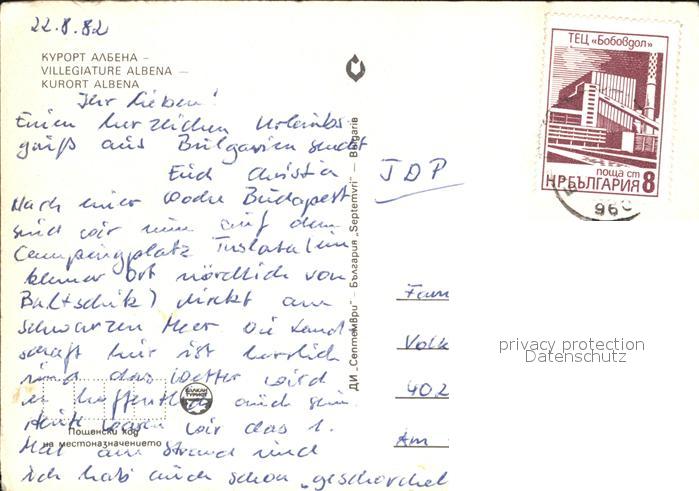 22.8.82
КУРОРТ АЛБЕНА –
VILLEGIATURE ALBENA –
KURORT ALBENA
Ihr Lieben!
Einen herzlichen Urlaubs-
gruß aus Bulgarien sendet
Euch Christia
JDP
Nach einer Woche Budapest
sind wir nun auf dem
Campingplatz (ein
kleiner Ort nördlich von
Baltschik) direkt am
Schwarzen Meer. Die Land-
schaft hier ist herrlich
und das Wetter wird
es hoffentlich auch sein.
Heute waren wir das 1.
Mal am Strand und
ich hab' mich schon
Пощенски код
на местоназначението
БАЛКАН
ТУРИСТ
ДИ „Септември" - България „Septemvri" — Bulgarie
ТЕЦ «Бобовдол»
поща ст
НР БЪЛГАРИЯ 8
960
Fam
Volk
402
Am
privacy protection
Datenschutz